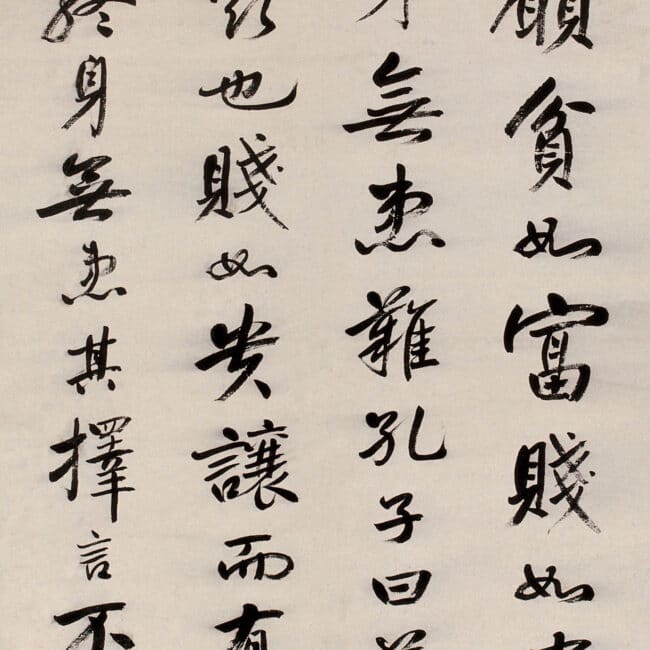 願貧如富賤如
身無患難孔子曰
欲也賤如貴讓而有
終身無患其擇言不